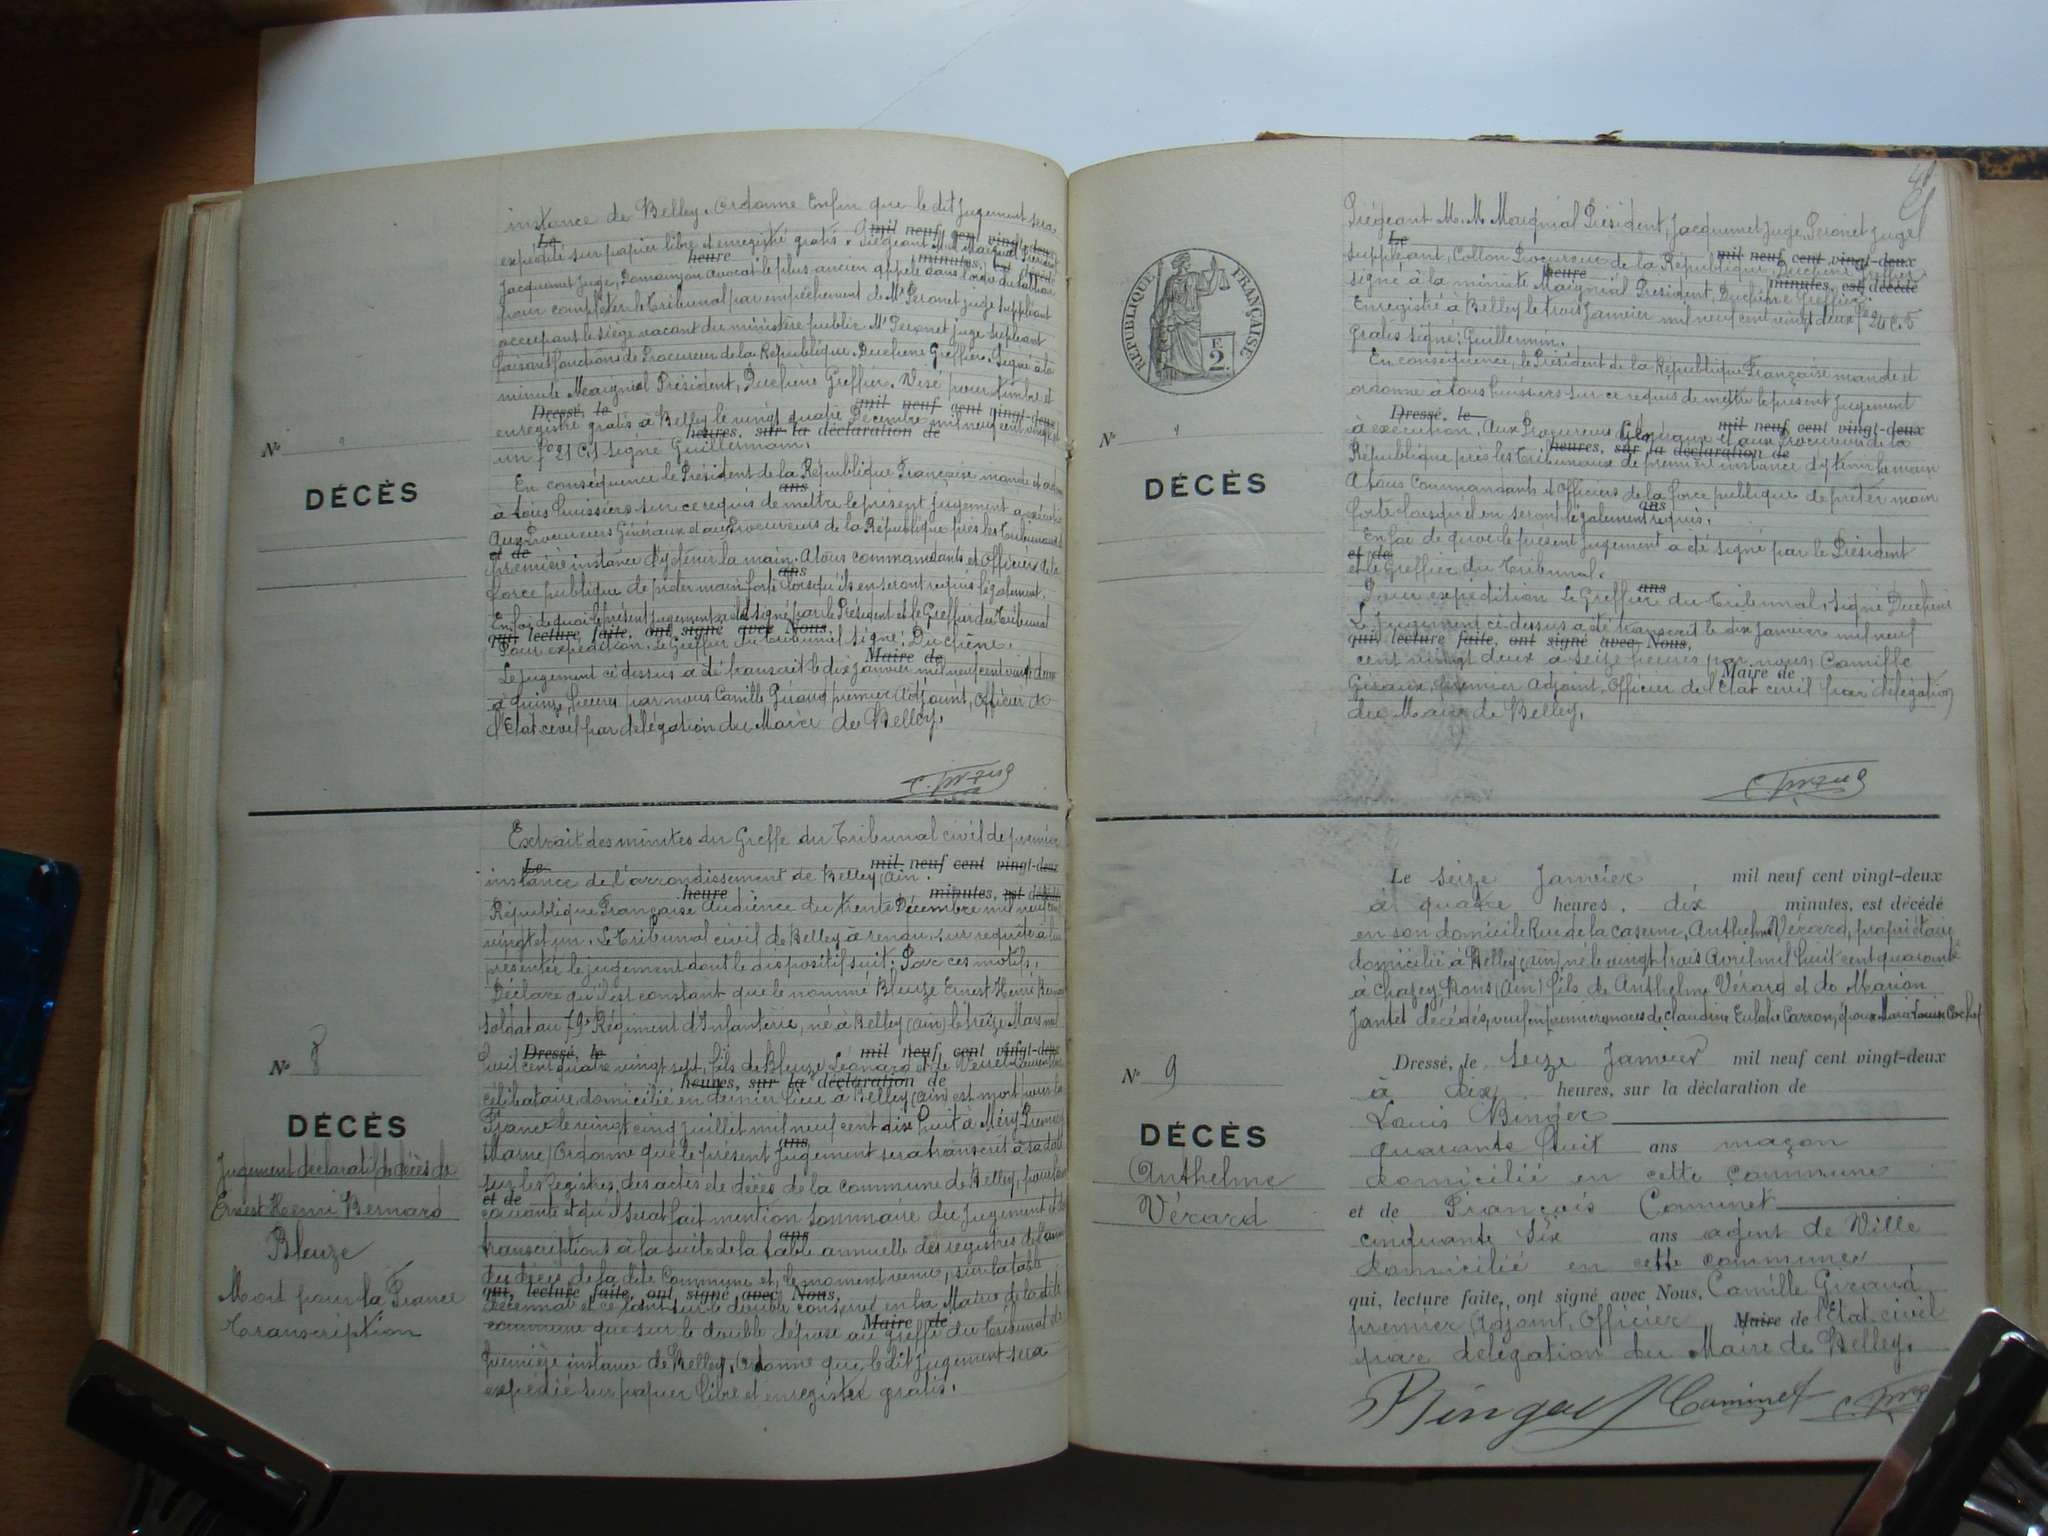 instance de Belley. Ordonne Enfin que le dit Jugement sera
Le mil neuf cent vingt-deux
expédité sur papier libre et enregistré gratis. Siégeant M.M. Maignial Président
heure minutes, est décédé
Jacquemet Juge, Domanjon avocat le plus ancien appelé dans l'ordre du tableau
pour compléter le Tribunal par empêchement de Mr Peronet juge suppléant
occupant le siège vacant du ministère public Mr Peronet juge suppléant
faisant fonctions de Procureur de la République. Duchêne Greffier. Signé à la
minute Maignial Président, Duchêne Greffier. Visé pour timbre et
Dressé, le mil neuf cent vingt-deux
enregistré gratis à Belley le vingt quatre Décembre mil neuf cent vingt et
heures, sur la déclaration de
un fo 21 C. 1 signé Guillermin.
En conséquence le Président de la République Française mande et ordonne
ans
à tous huissiers sur ce requis de mettre le présent jugement a exécution
Aux Procureurs Généraux et aux Procureurs de la République près les Tribunaux de
et de
première instance d'y tenir la main. A tous commandants et Officiers de la
ans
force publique de prêter main forte lorsqu'ils en seront requis légalement.
En foi de quoi le présent jugement a été signé par le Président et le Greffier du Tribunal
qui, lecture faite, ont signé avec Nous,
Pour expédition. Le Greffier du Tribunal signé: Duchêne.
Maire de
Le jugement ci dessus a été transcrit le dix Janvier mil neuf cent vingt deux
à quinze heures par nous Camille Giraud premier Adjoint, Officier de
l'Etat civil par délégation du Maire de Belley.
No
DÉCÈS
Extrait des minutes du Greffe du Tribunal civil de première
Le mil neuf cent vingt-deux
instance de l'arrondissement de Belley (Ain.
heure minutes, est décédé
République Française Audience du trente Décembre mil neuf cent
vingt et un. Le Tribunal civil de Belley a rendu sur requête à lui
présentée le jugement dont le dispositif suit: Par ces motifs,
Déclare qu'il est constant que le nommé Bleuze Ernest Henri Bernard
soldat au 79e Régiment d'Infanterie, né à Belley (Ain) le treize Mars mil
Dressé, le mil neuf cent vingt-deux
huit cent quatre vingt sept, fils de Bleuze Léonard et de
heures, sur la déclaration de
célibataire domicilié en dernier lieu à Belley (Ain) est mort pour la
France le vingt cinq juillet mil neuf cent dix huit à Méry Prémecy
ans
Marne) Ordonne que le présent Jugement sera transcrit à sa date
sur les Registres des actes de décès de la commune de Belley, pour l'année
et de
courante et qu'il serait fait mention sommaire du jugement et de
ans
transcriptions à la suite de la table annuelle des registres de l'année
des décès de la dite Commune et, le moment venu, sur la table
qui, lecture faite, ont signé avec Nous,
décennale et ce tant sur le double conservé en la Mairie de la dite
Maire de
commune que sur le double déposé au greffe du Tribunal de
première instance de Belley. Ordonne que le dit jugement sera
expédié sur papier libre et enregistré gratis.
No 8
DÉCÈS
Jugement déclaratif de décès de
Ernest Henri Bernard
Bleuze
Mort pour la France
Transcription
Siégeant M.M. Maignial Président, Jacquemet Juge, Peronet Juge
Le mil neuf cent vingt-deux
suppléant, Collon Procureur de la République, Duchêne Greffier
heure minutes, est décédé
signé à la minute Maignial President, Duchêne Greffier.
Enregistré à Belley le trois Janvier mil neuf cent vingt deux fo 24 C. 5
gratis signé: Guillermin.
En conséquence, le Président de la République Française mande et
ordonne à tous huissiers sur ce requis de mettre le présent Jugement
Dressé, le mil neuf cent vingt-deux
à exécution, Aux Procureurs Généraux et aux Procureurs de la
heures, sur la déclaration de
République près les Tribunaux de première instance d'y tenir la main
A tous Commandants et Officiers de la force publique de prêter main
ans
forte lorsqu'ils en seront légalement requis.
En foi de quoi le présent Jugement a été signé par le Président
et de
et le Greffier du Tribunal.
ans
Pour expédition Le Greffier du Tribunal, signé Duchêne
Le Jugement ci-dessus a été transcrit le dix Janvier mil neuf
qui, lecture faite, ont signé avec Nous,
cent vingt deux à seize heures par nous, Camille
Maire de
Giraud, premier Adjoint, Officier de l'Etat civil par délégation
du Maire de Belley.
RÉPUBLIQUE FRANÇAISE
2F
No
DÉCÈS
Le seize Janvier mil neuf cent vingt-deux
à quatre heures, dix minutes, est décédé
en son domicile Rue de la caserne, Anthelme Vérard, propriétaire
domicilié à Belley (Ain) né le vingt trois Avril mil huit cent quarante
à Chazey Bons (Ain) fils de Anthelme Vérard et de Marion
Jantet décédés, veuf en premieres noces de Claudine Eulalie Carron, époux Marie Louise Cochet
Dressé, le seize Janvier mil neuf cent vingt-deux
à dix heures, sur la déclaration de
Louis Binger
quarante huit ans maçon
domicilié en cette commune
et de François Cominet
cinquante six ans agent de Ville
domicilié en cette commune
qui, lecture faite, ont signé avec Nous, Camille Giraud
premier Adjoint, Officier Maire de l'Etat civil
par délégation du Maire de Belley.
No 9
DÉCÈS
Anthelme
Vérard
Cominet